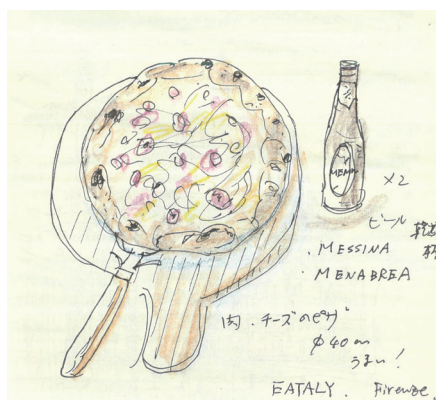 MENA
×2
ビール
・MESSINA
・MENABREA
肉・チーズのピザ
φ40cm
うまい!
EATALY. Firenze.